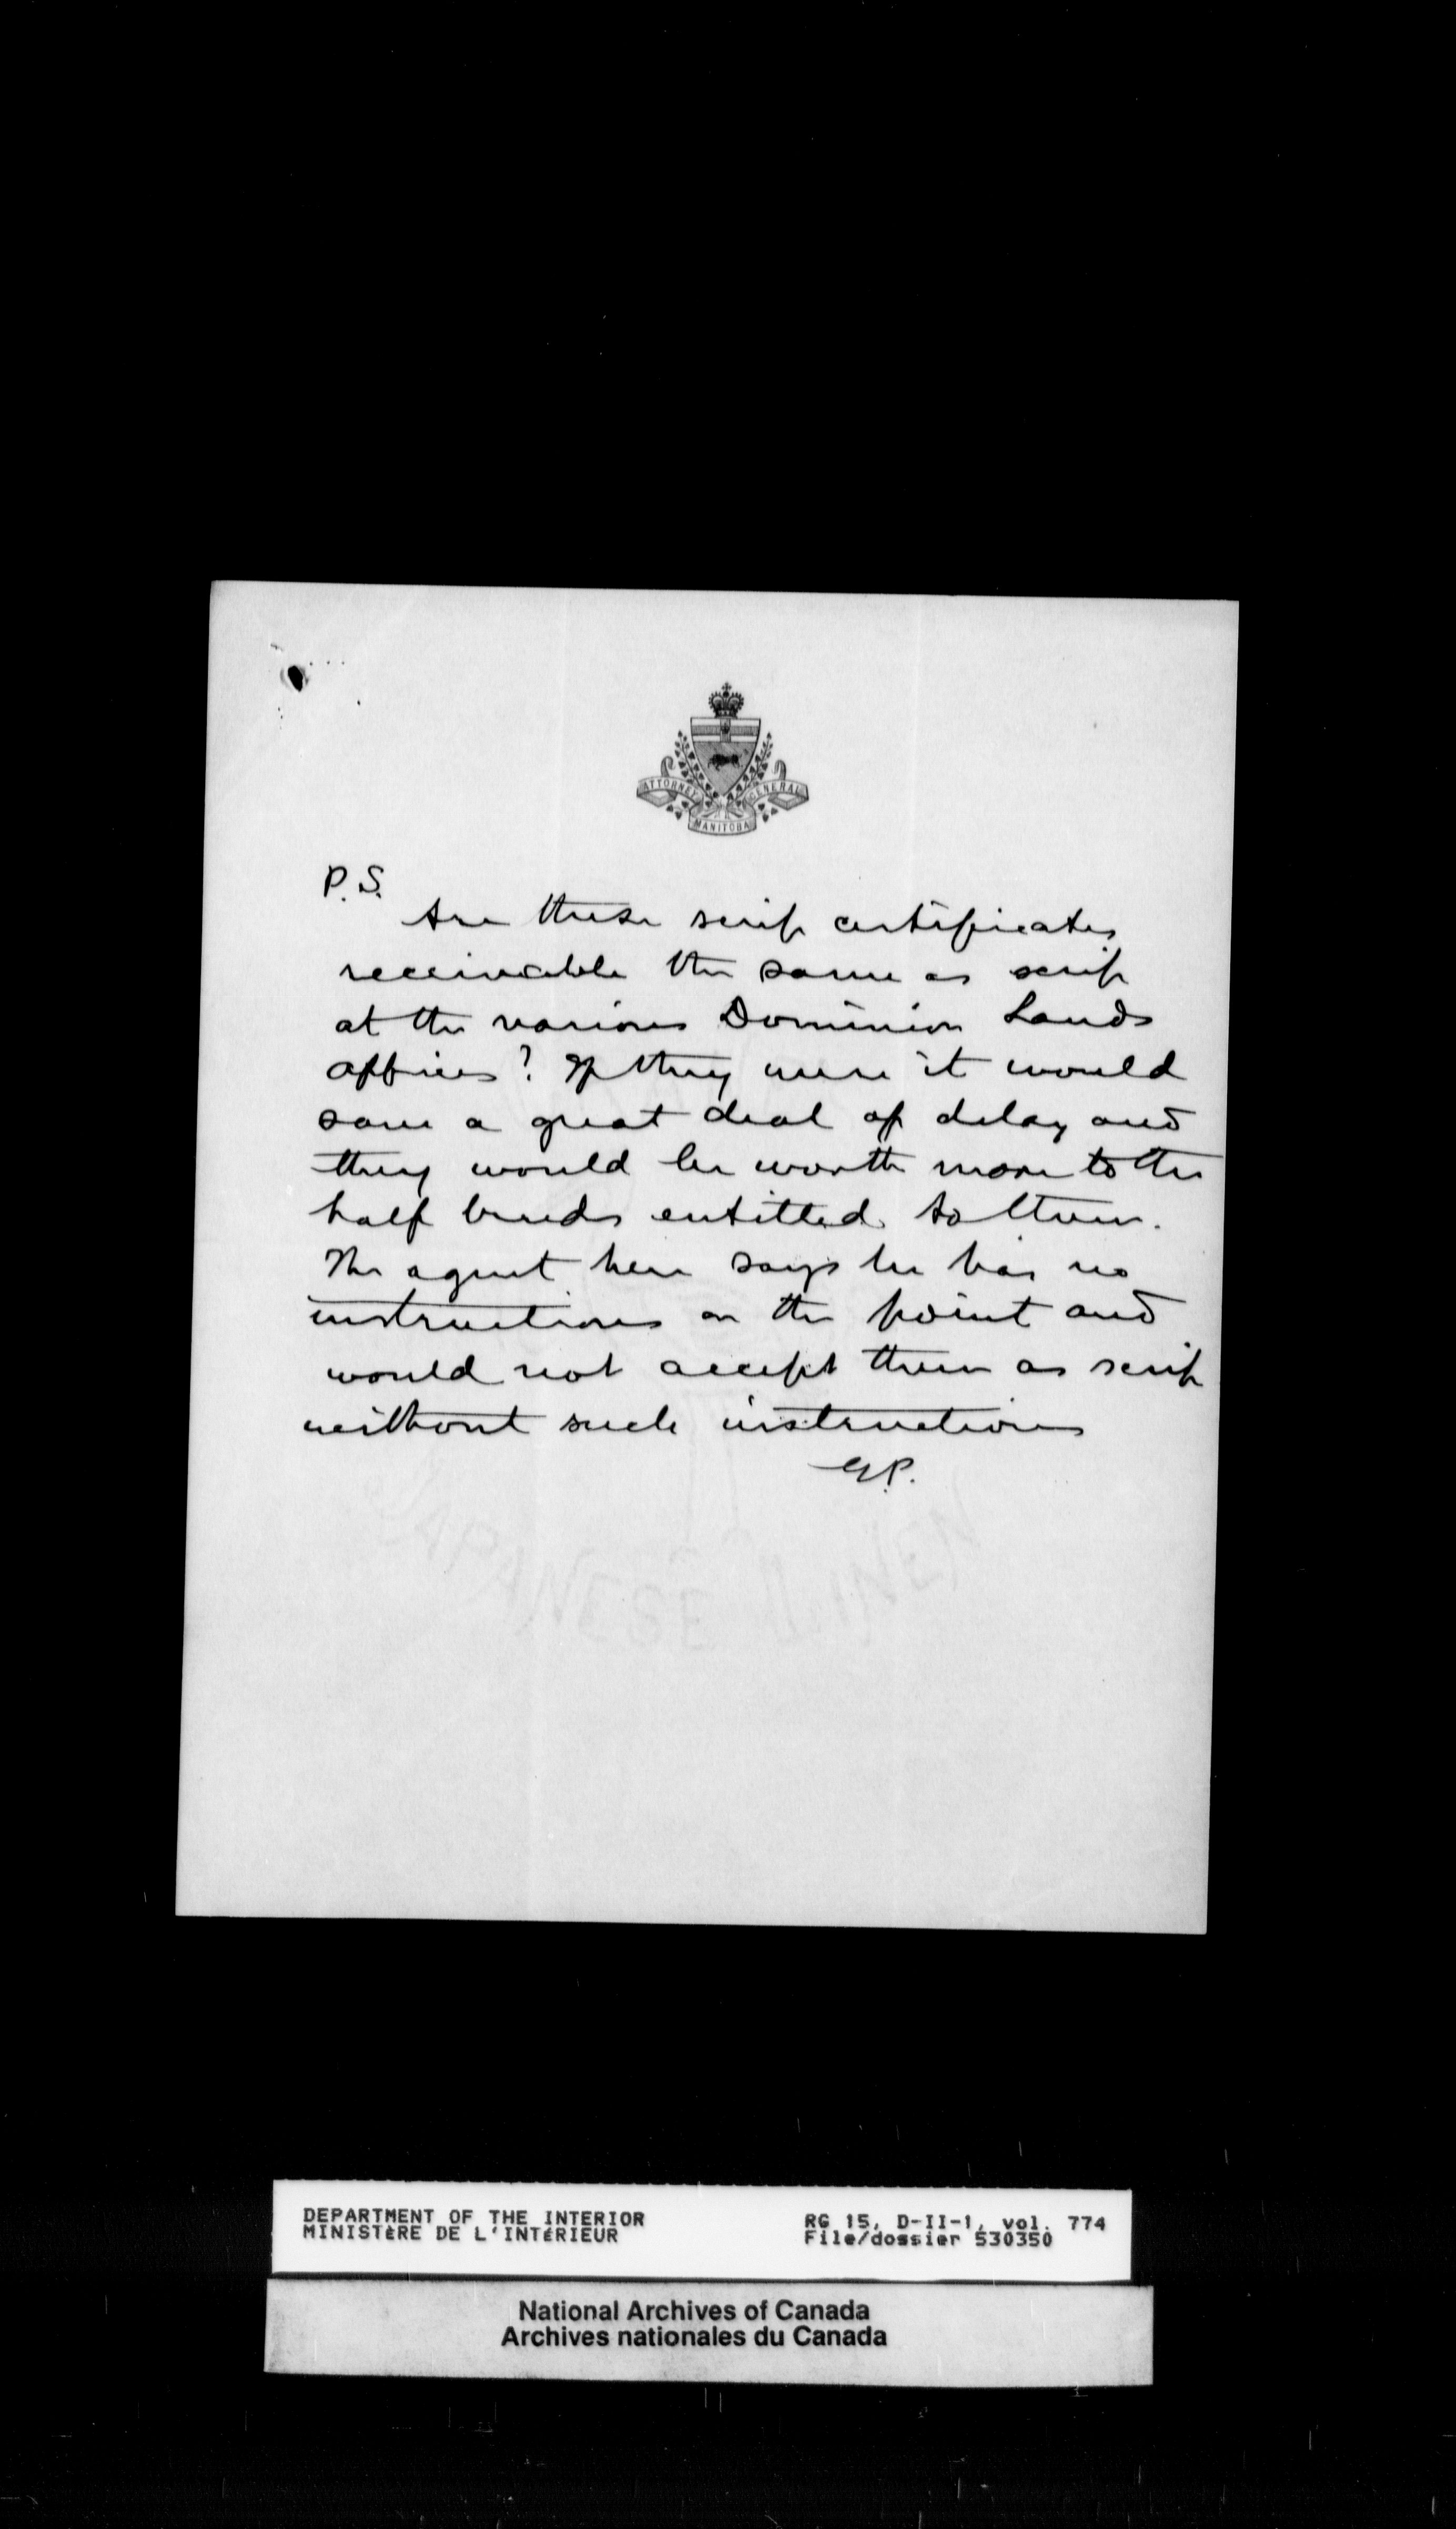 ATTORNEY GENERAL
MANITOBA
P.S.
Are these scrip certificates
receivable the same as scrip
at the various Dominion Lands
offices? If they were it would
save a great deal of delay and
they would be worth more to the
half breeds entitled to them.
The agent here says he has no
instructions on the point and
would not accept them as scrip
without such instructions
G.P.
JAPANESE LINEN
DEPARTMENT OF THE INTERIOR
MINISTÈRE DE L'INTÉRIEUR
RG 15, D-II-1, vol. 774
File/dossier 530350
National Archives of Canada
Archives nationales du Canada